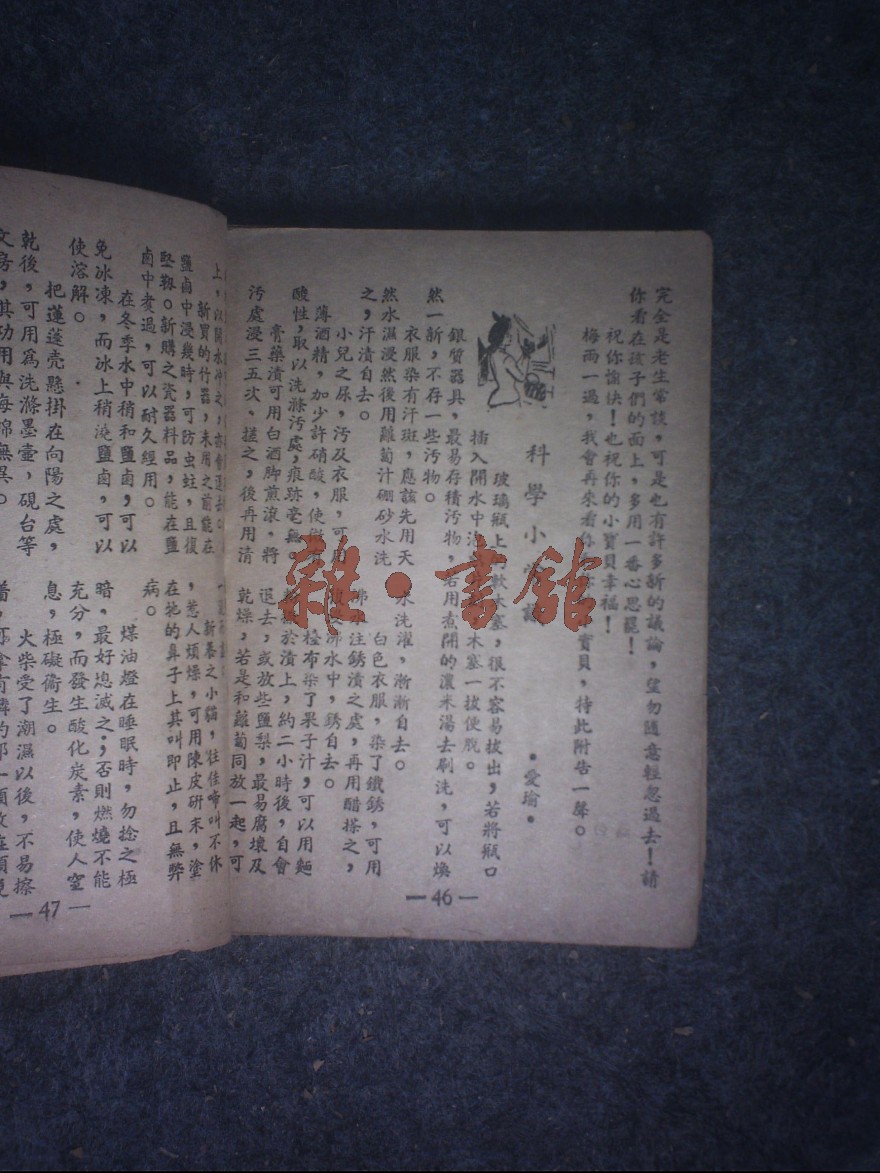 完全是老生常談，可是也有許多新的議論，望勿隨意輕忽過去！請
你看在孩子們的面上，多用一番心思罷！
祝你愉快！也祝你的小寶貝幸福！
梅雨一過，我會再來看你
寶貝，特此附告一聲。
科學小常識
•愛瑜•
玻璃瓶上
軟木塞，很不容易拔出，若將瓶口
插入開水中
木塞一拔便脫。
銀質器具，最易存積汚物，若用煮開的濃米湯去刷洗，可以煥
然一新，不存一些汚物。
衣服染有汗斑，應該先用天
然水濕浸然後用蘿蔔汁硼砂水洗
之，汗漬自去。
小兒之尿，汚及衣服，可用
薄酒精，加少許硝酸，使
酸性，取以洗滌汚處，痕跡毫無
膏藥漬可用白酒脚煎滾，將
汚處浸三五次、搓之，後再用清
水洗濯，漸漸自去。
白色衣服，染了鐵銹，可用
沸水注銹漬之處，再用醋搽之，
沸水中，銹自去。
檯布染了果子汁，可以用麵
於漬上，約二小時後，自會
退去，或放些鹽梨，最易腐壞及
乾燥，若是和蘿蔔同放一起，可
—46—
上，以開水冲之，亦會退去。
新買的竹器，未用之前能在
鹽鹵中浸幾時，可防虫蛀，且復
堅靱。新購之瓷器料品，能在鹽
鹵中煮過，可以耐久經用。
在冬季水中稍和鹽鹵，可以
免冰凍，而冰上稍澆鹽鹵，可以
使溶解。
把蓮蓬壳懸掛在向陽之處，
乾後，可用爲洗滌墨壷，硯台等
文房，其功用與海綿無異。
新養之小貓，往往啼叫不休
，惹人煩燥，可用陳皮研末，塗
在牠的鼻子上其叫即止，且無弊
病。
煤油燈在睡眠時，勿捻之極
暗，最好熄滅之；否則燃燒不能
充分，而發生酸化炭素，使人窒
息，極礙衛生。
火柴受了潮濕以後，不易擦
—47—
雜•書館